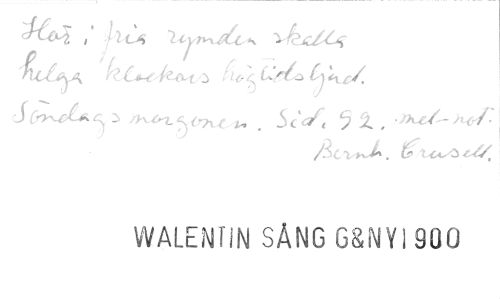 Hör i fria rymden skalla
helga klockors högtidsljud.
Söndagsmorgonen. Sid. 92. mel-not.
Bernh. Crusell.
WALENTIN SÅNG G&NY 1900